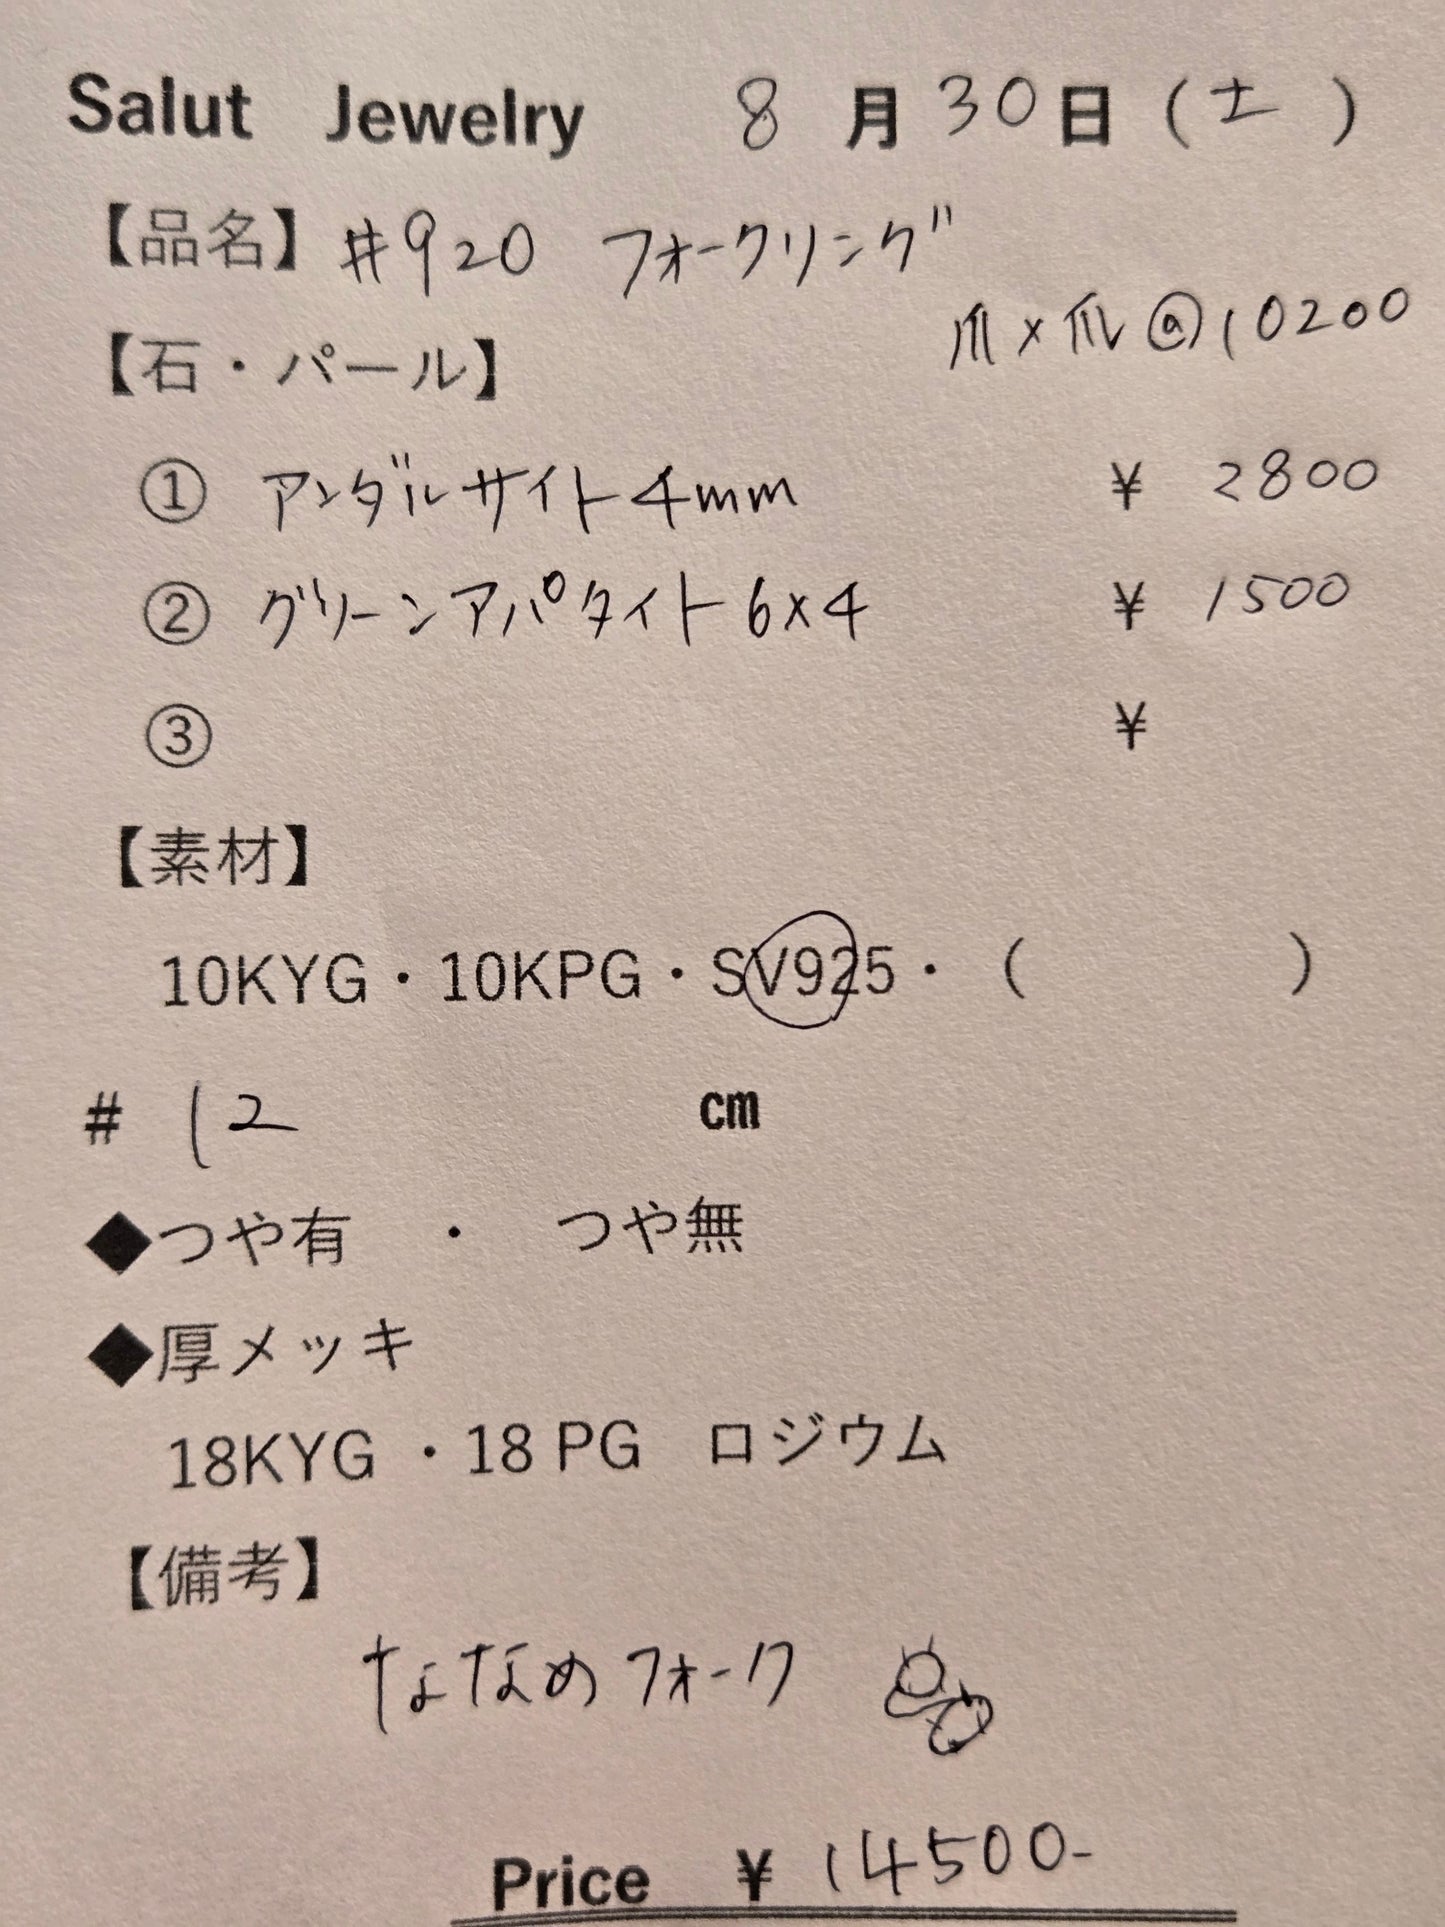 Salut Jewelry 8月30日(土)
【品名】#920 フォークリング
爪×爪@10200
【石・パール】
① アンダルサイト4mm ¥ 2800
② グリーンアパタイト6×4 ¥ 1500
③ ¥
【素材】
10KYG・10KPG・SV925・( )
# 12 cm
◆つや有 ・ つや無
◆厚メッキ
18KYG ・18 PG ロジウム
【備考】
ななめフォーク
Price ¥ 14500-